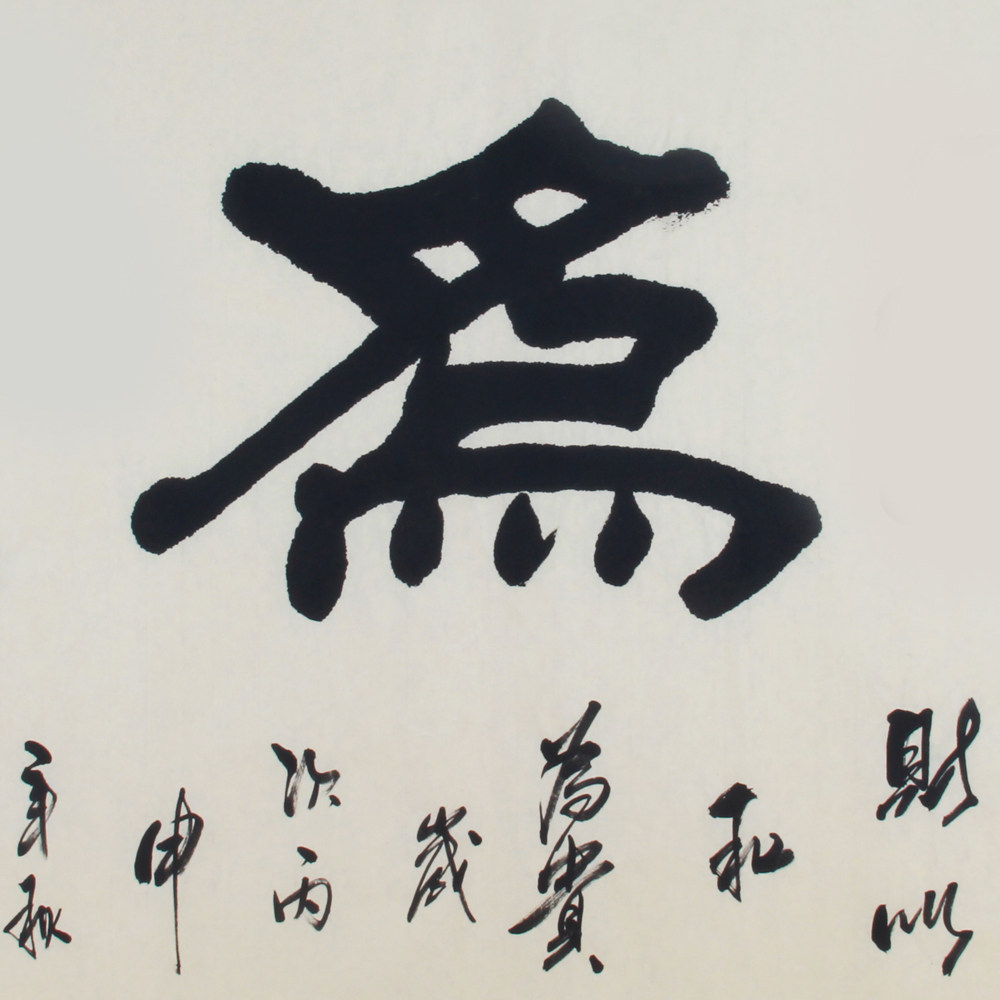 為
財以
和
為貴
歲
次丙
申
年秋